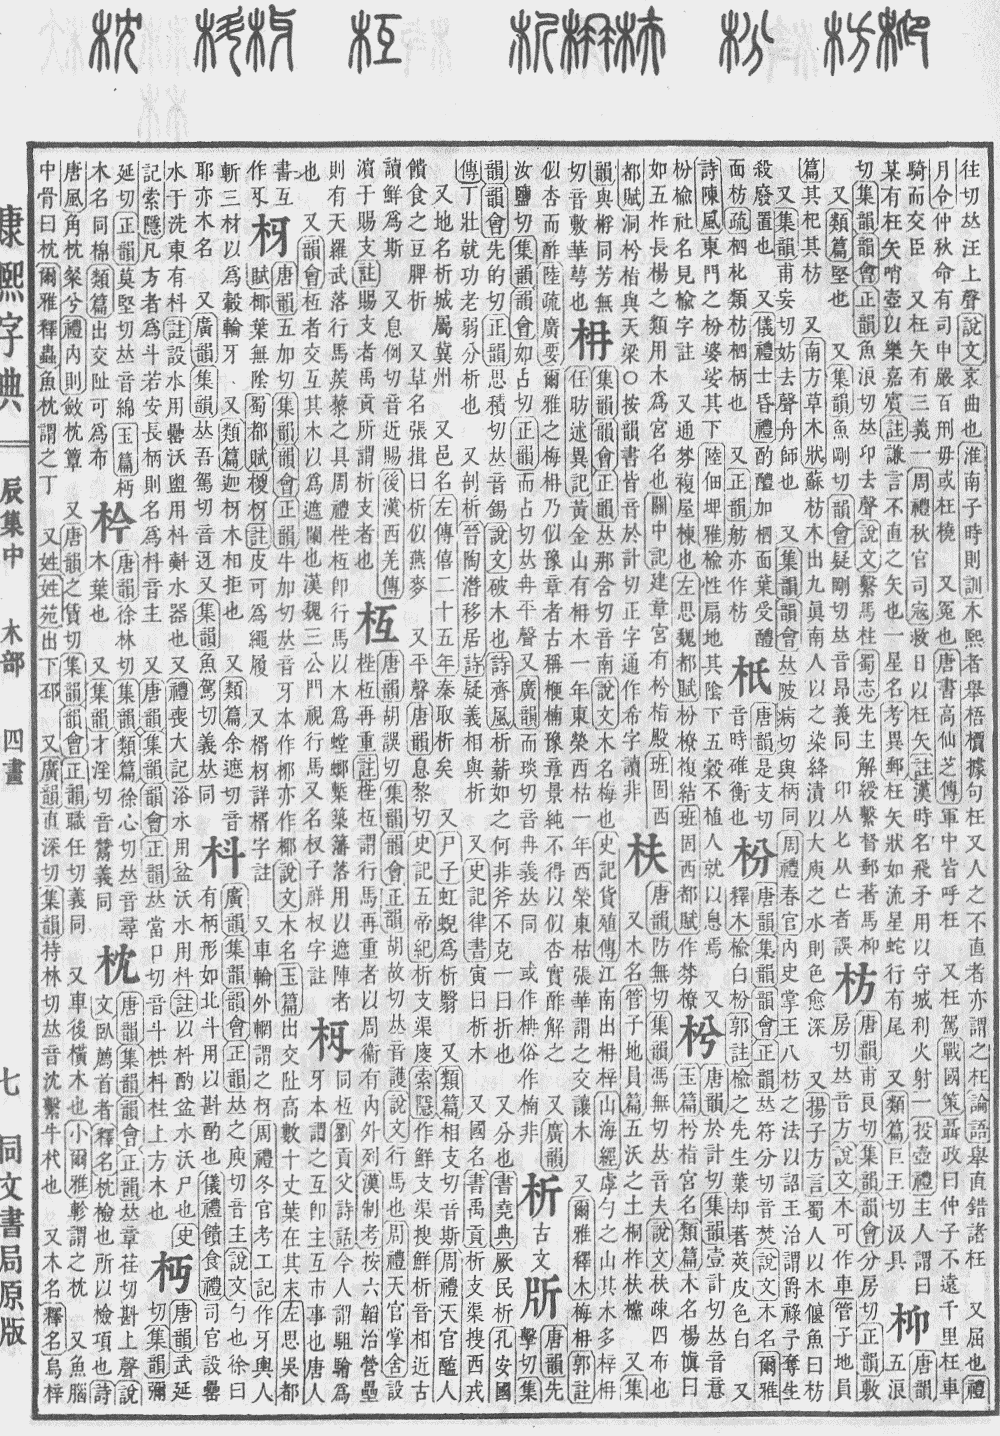 往切𠀤汪上聲說文衺曲也淮南子時則訓木熙者舉梧檟據句枉又人之不直者亦謂之枉論語舉直錯諸枉 又屈也禮
月令仲秋命有司申嚴百刑毋或枉橈 又冤也唐書高仙芝傳軍中皆呼枉 又枉駕戰國策聶政曰仲子不遠千里枉車
騎而交臣 又枉矢有三義一周禮秋官司寇救日以枉矢註漢時名飛矛用以守城利火射一投壺禮主人謂曰 枊 唐韻
某有枉矢哨壺以樂嘉賓註謙言不直之矢也一星名考異郵枉矢狀如流星蛇行有尾 又類篇巨王切汲具 五浪
切集韻韻會正韻魚浪切𠀤卬去聲說文繫馬柱蜀志先主解綬繫督郵著馬枊 枋 唐韻甫良切集韻韻會分房切正韻敷
又類篇堅也 又集韻魚剛切韻會疑剛切𠀤音昂義同 卬从匕从亡者誤 房切𠀤音方說文木可作車管子地員
篇其杞其枋 又南方草木狀蘇枋木出九眞南人以之染絳漬以大庾之水則色愈深 又揚子方言蜀人以木偃魚曰枋
又集韻甫妄切妨去聲舟師也 又集韻韻會𠀤陂病切與柄同周禮春官內史掌王八枋之法以詔王治謂爵祿予奪生
殺廢置也 又儀禮士昏禮酌醴加柶面葉受醴 唐韻是支切 枌 唐韻集韻韻會正韻𠀤符分切音焚說文木名爾雅
面枋疏柶枇類枋柶柄也 又正韻舫亦作枋 音時碓衡也 釋木楡白枌郭註楡之先生葉却著莢皮色白 又
詩陳風東門之枌婆娑其下陸佃埤雅楡性扇地其陰下五穀不植人就以息焉 又 枍 唐韻於計切集韻壹計切𠀤音意
枌楡社名見楡字註 又通棼複屋棟也左思魏都賦枌橑複結班固西都賦作棼橑 玉篇枍栺宮名類篇木名楊愼曰
如五柞長楊之類用木為宮名也關中記建章宮有枍栺殿班固西 枎 唐韻防無切集韻馮無切𠀤音夫說文枎疎四布也
都賦洞枍栺與天梁○按韻書皆音於計切正字通作希字讀非 又木名管子地員篇五沃之土桐柞枎櫄 又集
韻與柎同芳無 枏 集韻韻會正韻𠀤那舍切音南說文木名梅也史記貨殖傳江南出枏梓山海經虖勺之山其木多梓枏
切音敷華萼也 任昉述異記黃金山有枏木一年東榮西枯一年西榮東枯張華謂之交讓木 又爾雅釋木梅枏郭註
似杏而酢陸疏廣要爾雅之梅枏乃似豫章者古稱楩楠豫章景純不得以似杏實酢解之 又廣韻 析 古文 㪿 唐韻先
汝鹽切集韻韻會如占切正韻而占切𠀤冉平聲又廣韻而琰切音冉義𠀤同 或作柟俗作楠非 擊切集
韻韻會先的切正韻思積切𠀤音錫說文破木也詩齊風析薪如之何非斧不克一曰折也 又分也書堯典厥民析孔安國
傳丁壯就功老弱分析也 又剖析晉陶潛移居詩疑義相與析 又史記律書寅曰析木 又國名書禹貢析支渠搜西戎
又地名析城屬冀州 又邑名左傳僖二十五年秦取析矣 又尸子虹蜺為析翳 又類篇相支切音斯周禮天官醢人
饋食之豆脾析 又草名張揖曰析似燕麥 又平聲唐韻息黎切史記五帝紀析支渠廋索隱作鮮支渠搜鮮析音相近古
讀鮮為斯 又息例切音近賜後漢西羌傳 枑 唐韻胡誤切集韻韻會正韻胡故切𠀤音護說文行馬也周禮天官掌舍設
濱于賜支註賜支者禹貢所謂析支者也 梐枑再重註梐枑謂行馬再重者以周衞有內外列漢制考按六韜治營壘
則有天羅武落行馬蒺藜之具周禮梐枑卽行馬以木為螳螂槧築籓落用以遮陣者 同枑劉貢父詩話今人謂駔驓為
也 又韻會枑者交互其木以為遮闌也漢魏三公門視行馬又名杈子詳杈字註 牙本謂之互卽主互市事也唐人
書互 枒 唐韻五加切集韻韻會正韻牛加切𠀤音牙本作枒亦作椰說文木名玉篇出交趾高數十丈葉在其末左思吳都
作 賦枒葉無陰蜀都賦椶枒註皮可為繩履 又楈枒詳楈字註 又車輪外輞謂之枒周禮冬官考工記作牙輿人
斬三材以為轂輪牙 又類篇迦枒木相拒也 又類篇余遮切音 枓 廣韻集韻韻會正韻𠀤之庾切音主說文勺也徐曰
耶亦木名 又廣韻集韻𠀤吾駕切音迓又集韻魚駕切義𠀤同 有柄形如北斗用以斟酌也儀禮饋食禮司官設罍
水于洗東有枓註設水用罍沃盥用枓㪺水器也又禮喪大記浴水用盆沃水用枓註以枓酌盆水沃尸也史 唐韻武延
記索隱凡方者為斗若安長柄則名為枓音主 又唐韻集韻韻會正韻𠀤當口切音斗栱枓柱上方木也 切集韻彌
延切正韻莫堅切𠀤音綿玉篇 枔 唐韻徐林切集韻類篇徐心切𠀤音尋 枕 唐韻集韻韻會正韻𠀤章荏切斟上聲說
木名同棉類篇出交趾可為布 木葉也 又集韻才淫切音鬵義同 文臥薦首者釋名枕檢也所以檢項也詩
唐風角枕粲兮禮內則斂枕簟 又唐韻之賃切集韻韻會正韻職任切義同 又車後橫木也小爾雅軫謂之枕 又魚腦
中骨曰枕爾雅釋蟲魚枕謂之丁 又姓姓苑出下邳 又廣韻直深切集韻持林切𠀤音沈繫牛杙也 又木名釋名烏梓
康熙字典 辰集中 木部 四畫 七 同文書局原版